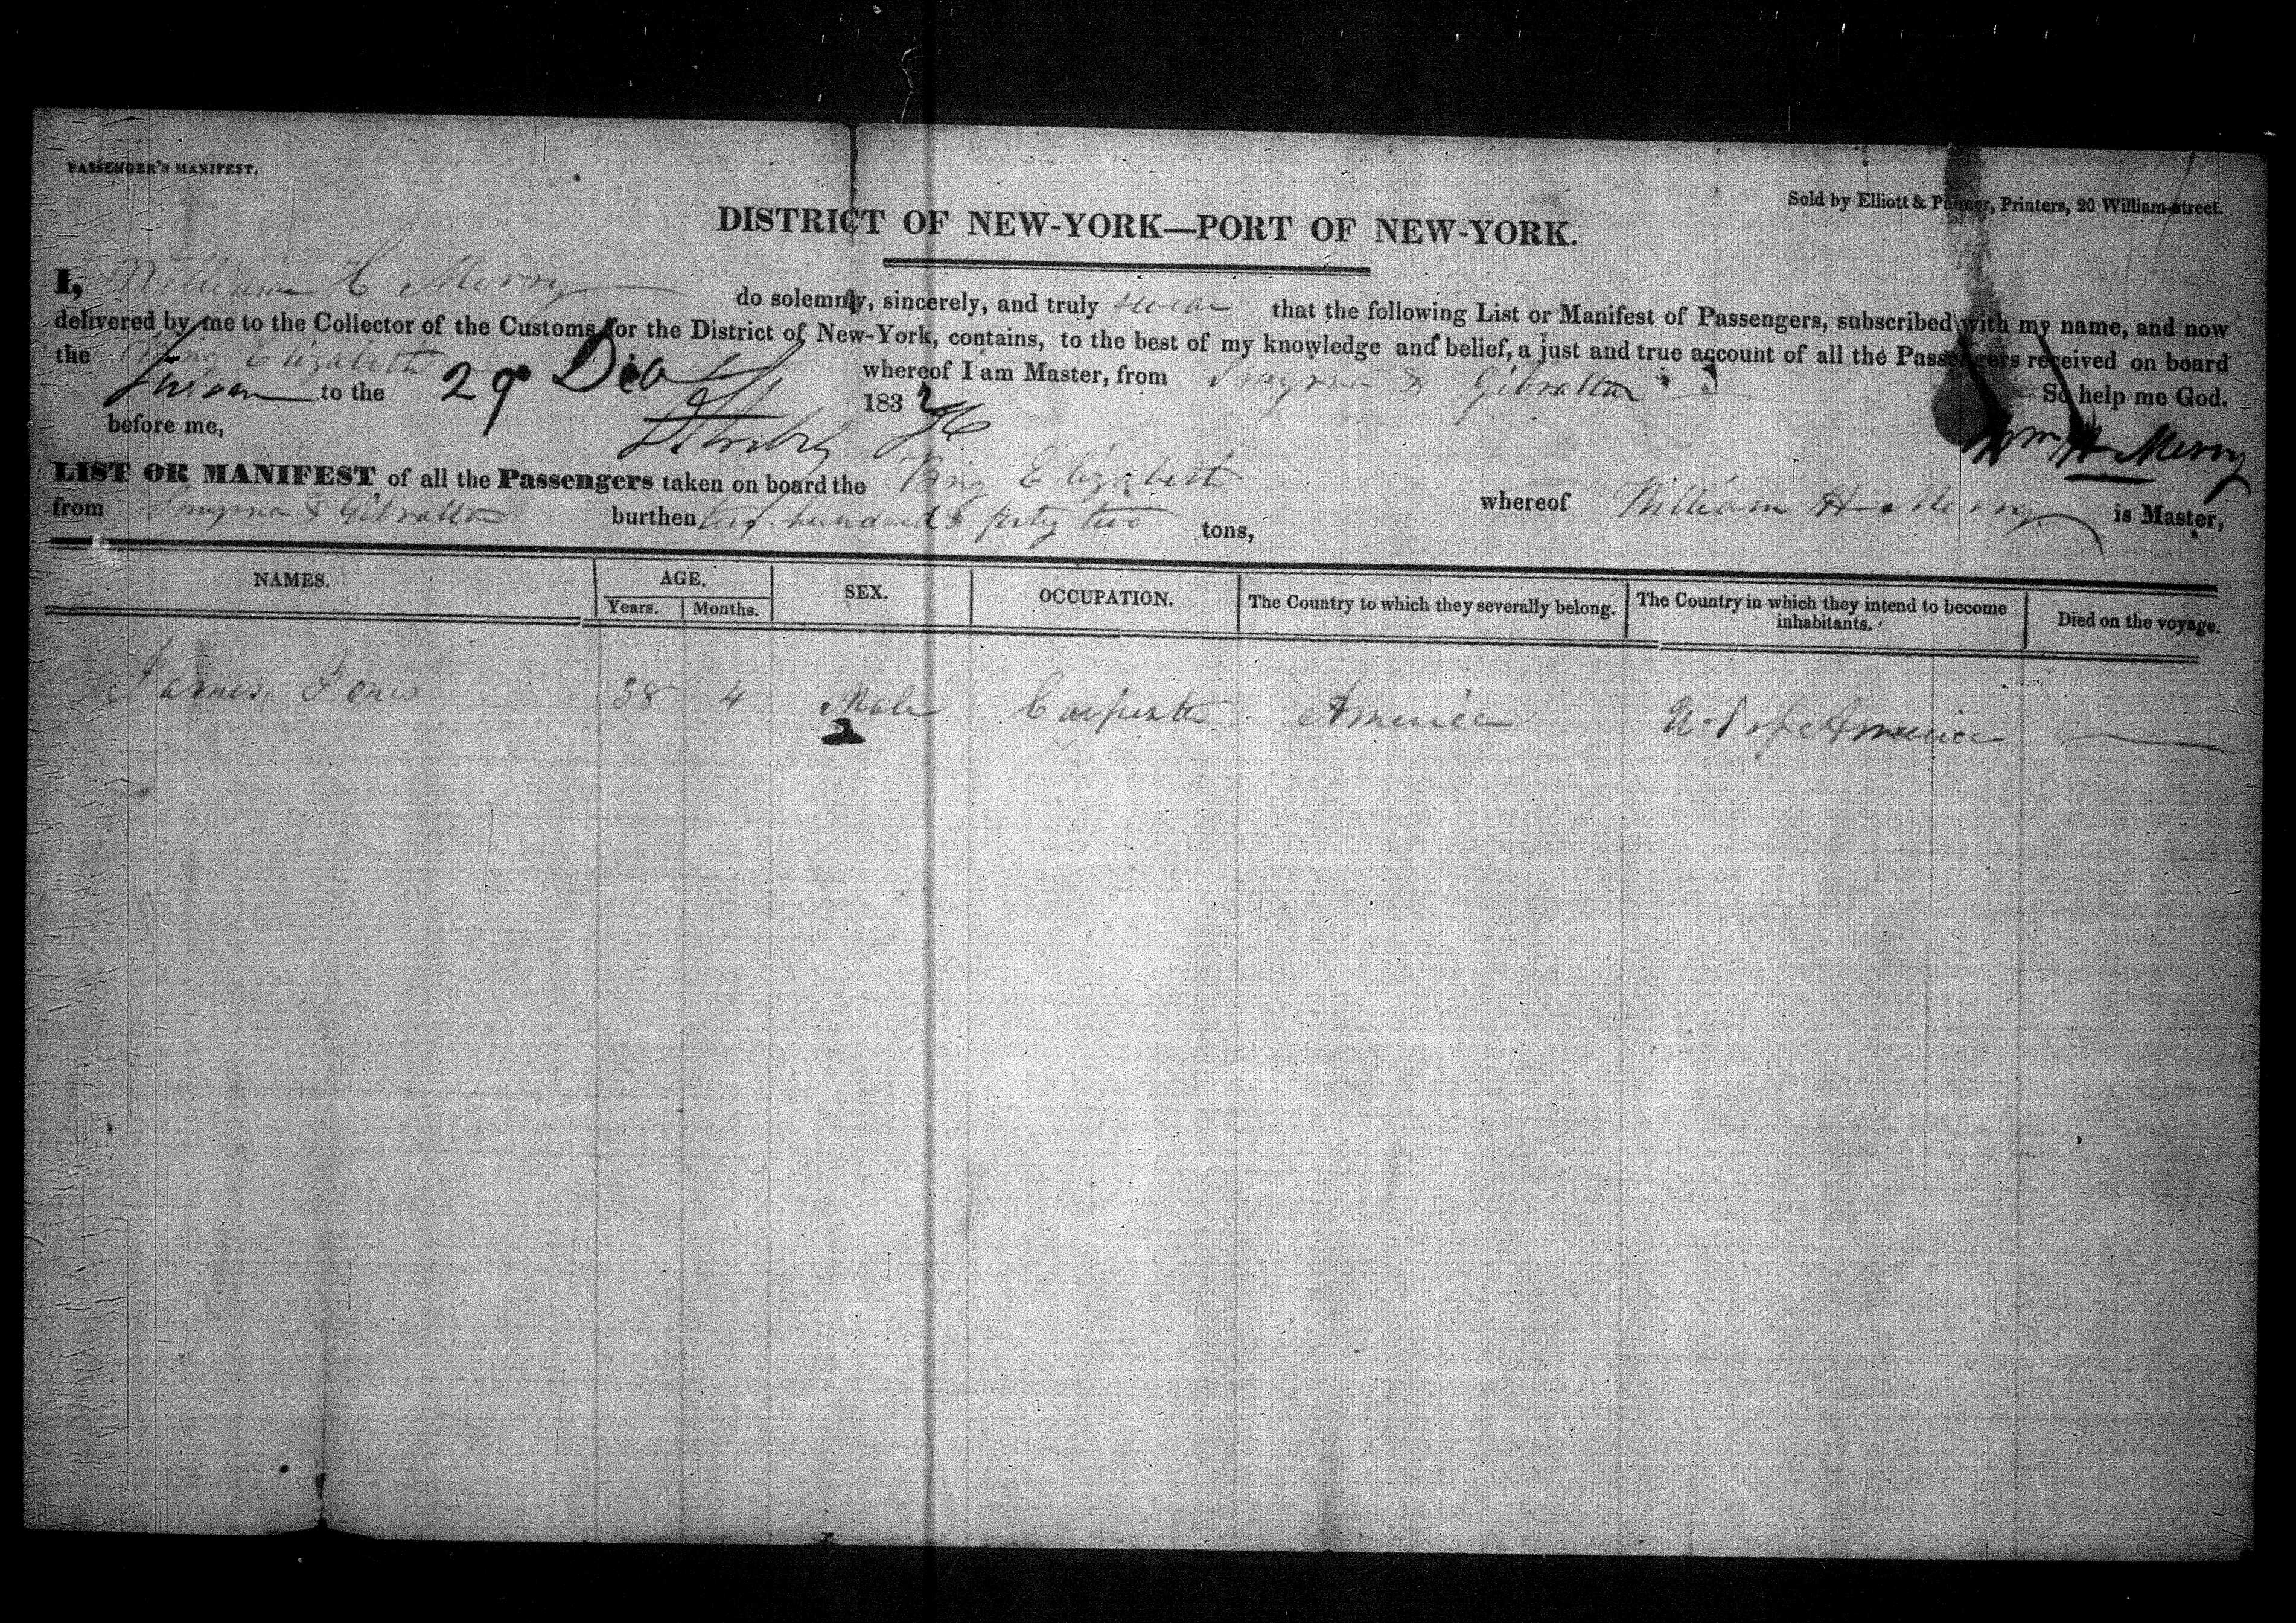 PASSENGER'S MANIFEST.
Sold by Elliott & Palmer, Printers, 20 William-street.
DISTRICT OF NEW-YORK—PORT OF NEW-YORK.
I, William H Merry do solemnly, sincerely, and truly swear that the following List or Manifest of Passengers, subscribed with my name, and now
delivered by me to the Collector of the Customs for the District of New-York, contains, to the best of my knowledge and belief, a just and true account of all the Passengers received on board
the Brig Elizabeth whereof I am Master, from Smyrna & Gibraltar So help me God.
Sworn to the 29 Dec 1832
before me,
Wm H Merry
LIST OR MANIFEST of all the Passengers taken on board the Brig Elizabeth whereof William H Merry is Master,
from Smyrna & Gibraltar burthen two hundred & forty two tons,
NAMES. AGE. SEX. OCCUPATION. The Country to which they severally belong. The Country in which they intend to become inhabitants. Died on the voyage.
Years. Months.
James Jones 38 4 Male Carpenter America U. S of America